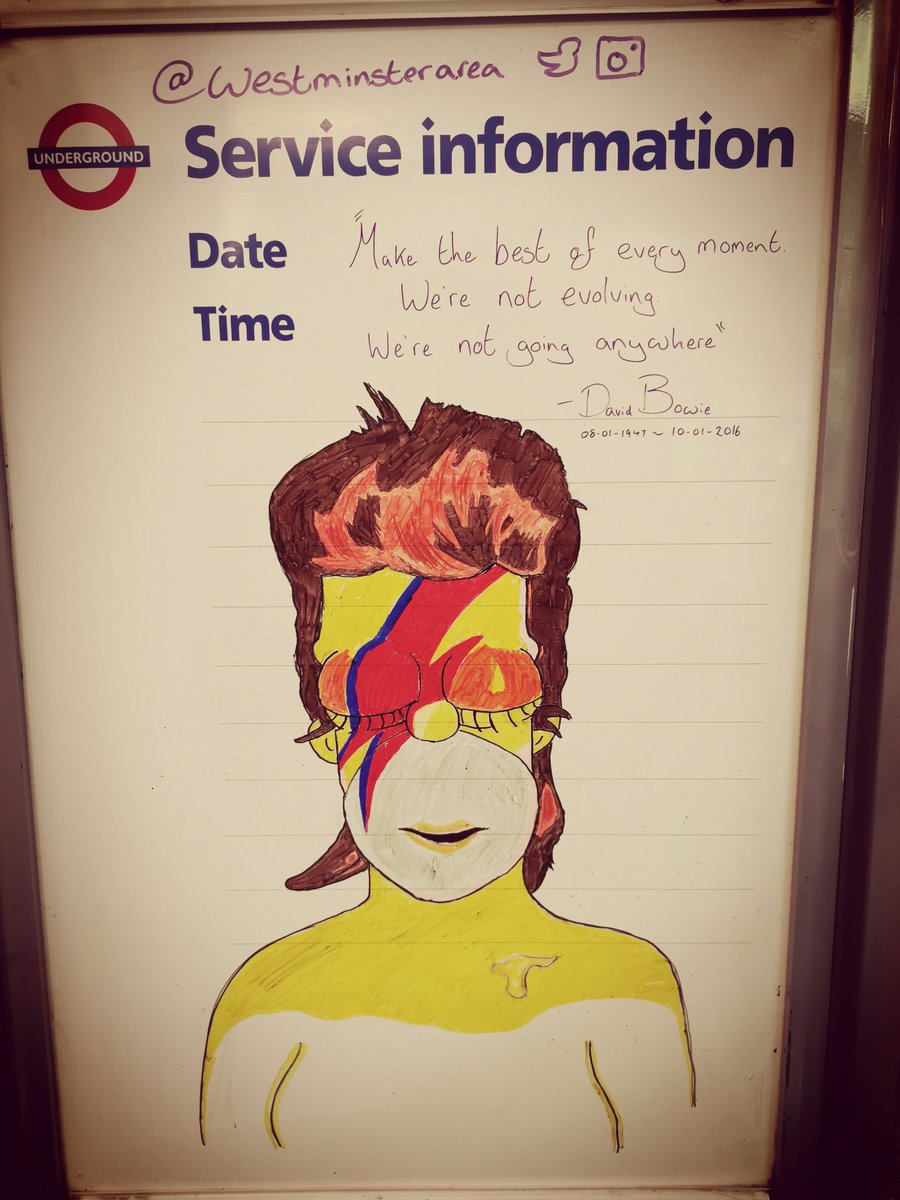 @Westminsterarea
UNDERGROUND
Service information
Date
"Make the best of every moment.
We're not evolving.
Time
We're not going anywhere"
- David Bowie
08-01-1947 ~ 10-01-2016